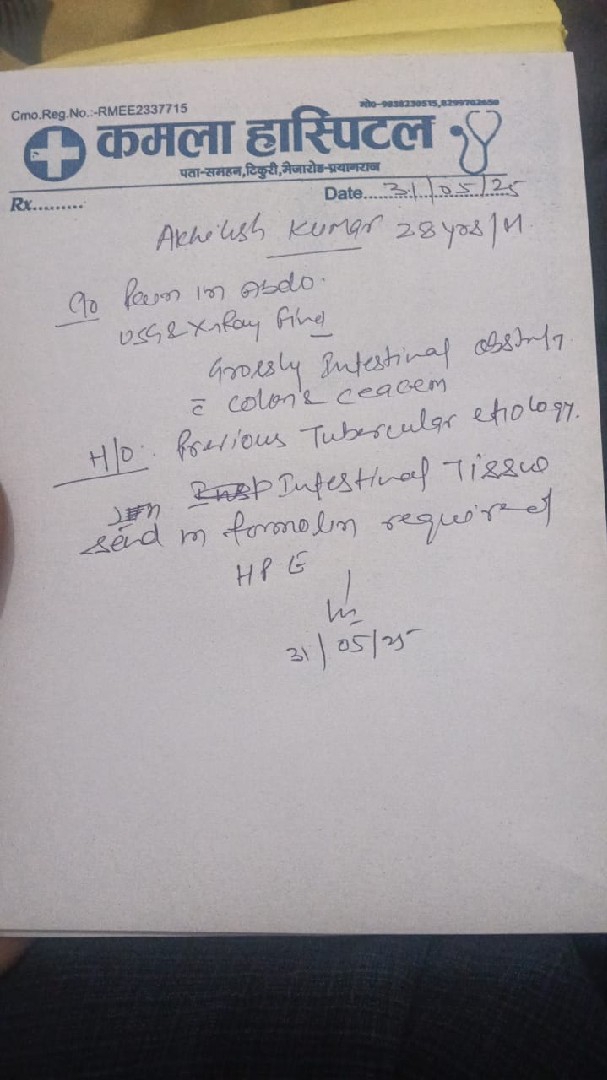 Cmo.Reg.No.:-RMEE2337715
मो०-9838230515,8299702650
कमला हास्पिटल
पता-समहन,टिकुरी,मेजारोड-प्रयागराज
Rx.........
Date....31/05/25
Akhilesh Kumar 28 yrs/M.
C/o Pain in Abdo.
USG & X-Ray Find
Grossly Intestinal obstn
c̄ colon & ceacem
H/O: Previous Tubercular etiology.
Intestinal Tissue
send in formolin required
HPE
31/05/25